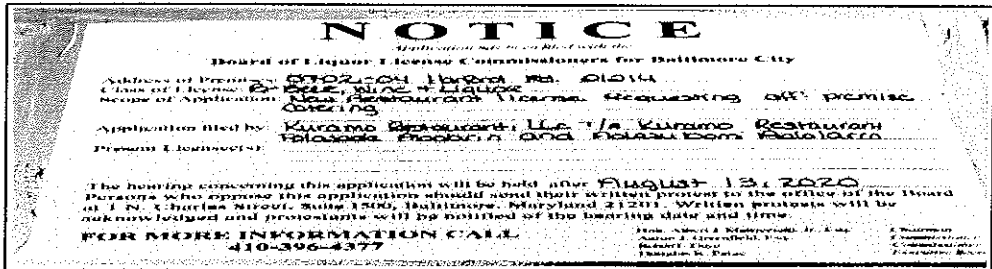 NOTICE
Application has been filed with the
Board of Liquor License Commissioners for Baltimore City
Address of Premises: Harford Rd. 21214
Class of License: B- Beer, Wine + Liquor
Scope of Application: New Restaurant license. Requesting off premise
catering
Application filed by: Kuramo Restaurant, LLC T/a Kuramo Restaurant
and
Present Licensee(s):
The hearing concerning this application will be held after August 13, 2020
Persons who oppose this application should send their written protest to the office of the Board
at 1 N. Charles Street, Suite 1500, Baltimore, Maryland 21201. Written protests will be
acknowledged and protestants will be notified of the hearing date and time.
FOR MORE INFORMATION CALL
410-396-4377
Chairman
Commissioner
Commissioner